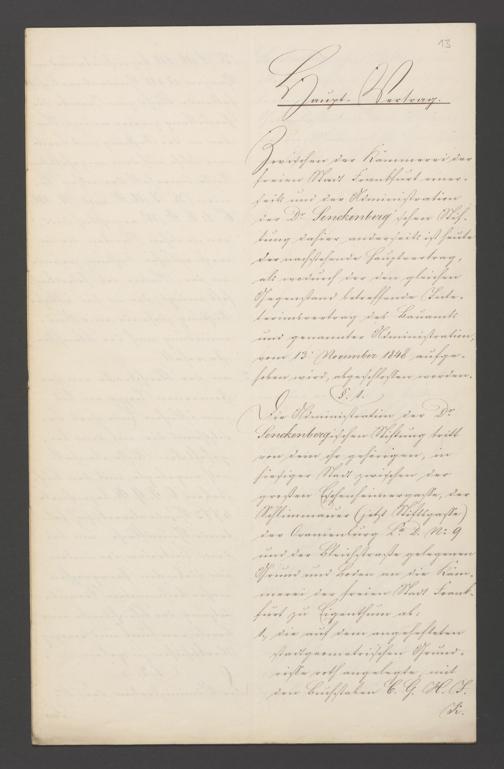 13
Haupt-Vertrag.
Zwischen der Kämmerei der
freien Stadt Frankfurt einer-
seits und der Administration
der Dr. Senckenberg'schen Stif-
tung dahier, anderseits ist heute
der nachstehende Hauptvertrag,
als wodurch der den gleichen
Gegenstand betreffende Inte-
terimsvertrag des Bauamts
und genannter Administration,
vom 13. November 1848 aufge-
hoben wird, abgeschlossen worden.
§. 1.
Die Administration der Dr.
Senckenbergischen Stiftung tritt
von dem ihr gehörigen, in
hiesiger Stadt zwischen der
großen Eschenheimergasse, der
Schlimmauer (jetzt Stiftsgasse)
der Oranienburg La. D. No. 9
und der Bleichstraße gelegenen
Grund und Boden an die Käm-
merei der freien Stadt Frank-
furt zu Eigenthum ab:
1, die auf dem angehefteten
stadtgeometrischen Grund-
risse roth angelegte, mit
den Buchstaben C. G. H. J.
K.